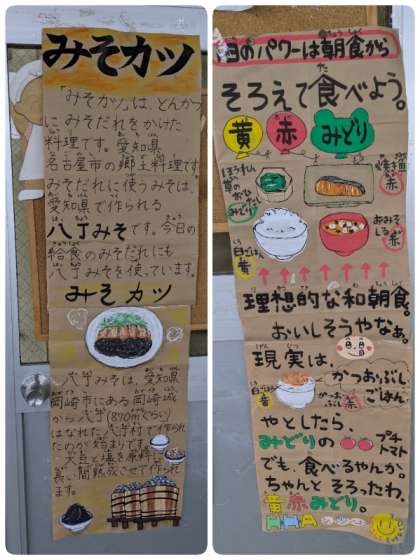 みそカツ
「みそカツ」は、とんかつ
にみそだれをかけた
料理です。愛知県
名古屋市の郷土料理です。
みそだれに使うみそは、
愛知県で作られる
八丁みそです。今日の
給食のみそだれにも
八丁みそを使っています。
みそカツ
八丁みそは、愛知県
岡崎市にある岡崎城
から八丁(870mぐらい)
はなれた八丁村で作られ
たのが始まりです。
大豆と塩を原料に
間熟成させて作られ
ます。
のパワーは朝食から
そろえて食べよう。
黄
赤
みどり
ほうれん
草の
おひたし
みどり
焼き魚
赤
白ごはん
黄
おみそ
しる
赤
理想的な和朝食。
おいしそうやなぁ。
現実は、
白ごはん
黄
かつおぶし
赤
かつおぶし
ごはん
やとしたら、
みどりの
プチ
トマト
でも、食べるやんか。
ちゃんとそろったわ、
黄赤みどり。